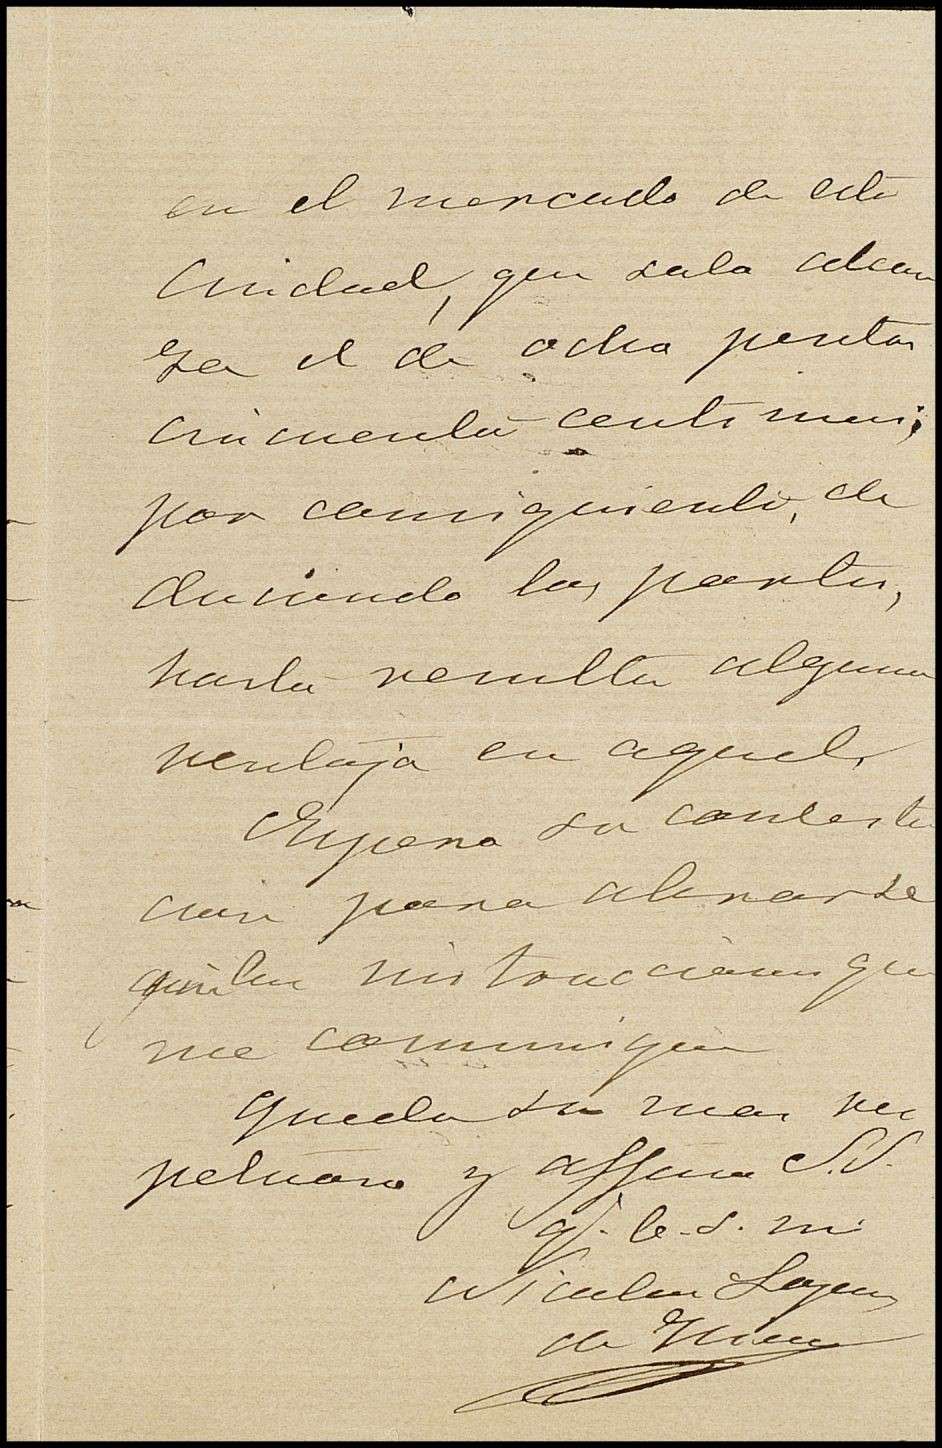 en el mercado de esta
Ciudad, que solo alcan
za el de ocho pesetas
cincuenta centimos;
por consiguiente, de
duciendo los portes,
hasta resulta alguna
ventaja en aquel.
Espero su contesta
cion para atenerse
á las instrucciones que
me comunique
Queda su mas res
petuoso y affmo S.S.
q. b. s. m.
Nicolas
de